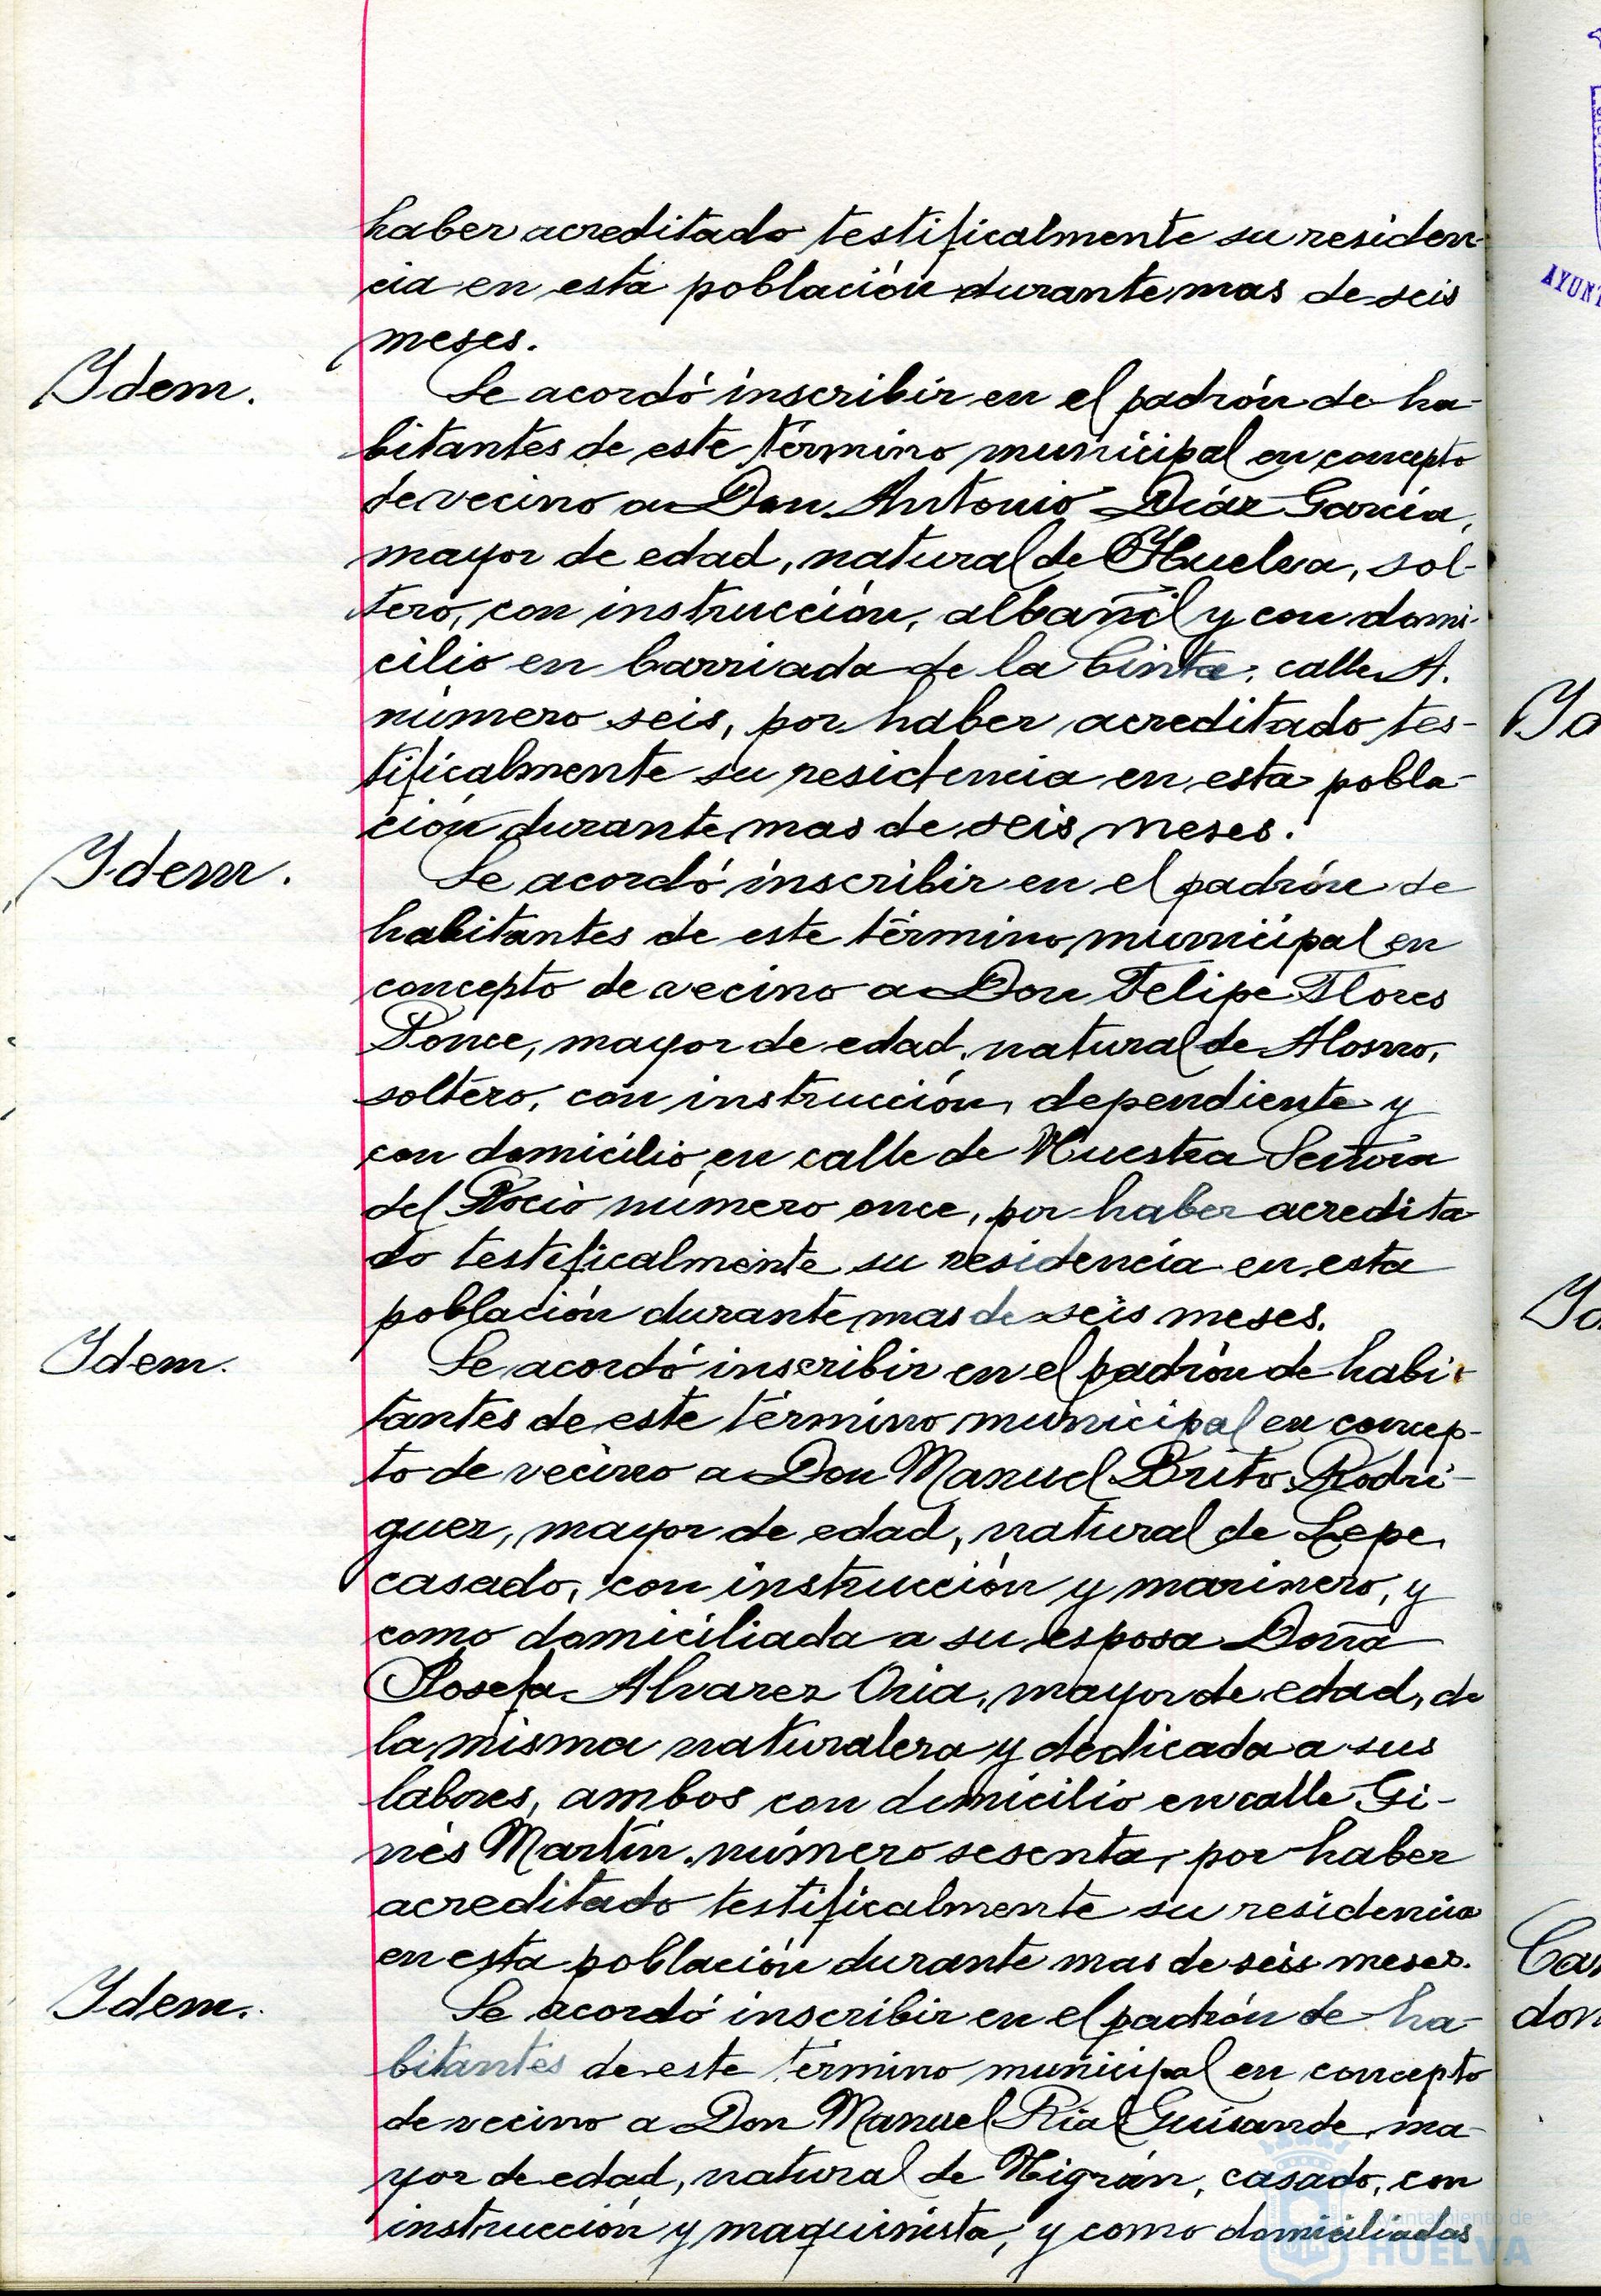 haber acreditado testificalmente su residen-
cia en esta población durante mas de seis
meses.
Idem.
Se acordó inscribir en el padrón de ha-
bitantes de este término municipal en concepto
de vecino a Don Antonio Diáz García,
mayor de edad, natural de Huelva, sol-
tero, con instrucción, albañil y con domi-
cilio en barriada de la Cinta, calle A.
número seis, por haber acreditado tes-
tificalmente su residencia en esta pobla-
ción durante mas de seis meses.
Idem.
Se acordó inscribir en el padrón de
habitantes de este término municipal en
concepto de vecino a Don Felipe Flores
Ponce, mayor de edad, natural de Alosno,
soltero, con instrucción, dependiente y
con domicilio en calle de Nuestra Señora
del Rocio número once, por haber acredita-
do testificalmente su residencia en esta
población durante mas de seis meses.
Idem.
Se acordó inscribir en el padrón de habi-
tantes de este término municipal en concep-
to de vecino a Don Manuel Brito Rodri-
guez, mayor de edad, natural de Lepe,
casado, con instrucción y marinero, y
como domiciliada a su esposa Doña
Josefa Alvarez Oria, mayor de edad, de
la misma naturaleza y dedicada a sus
labores, ambos con domicilio en calle Gi-
nés Martín, número sesenta, por haber
acreditado testificalmente su residencia
en esta población durante mas de seis meses.
Idem.
Se acordó inscribir en el padrón de ha-
bitantes de este término municipal en concepto
de vecino a Don Manuel Rial Guisande, ma-
yor de edad, natural de Nigrán, casado, con
instrucción y maquinista, y como domiciliadas
Ayuntamiento de
HUELVA